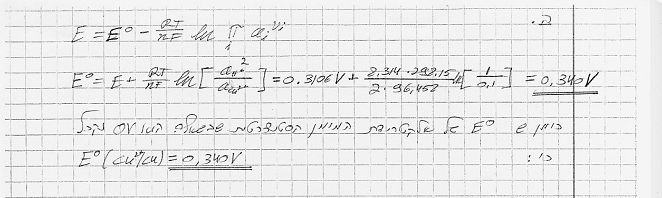 ב.
E = E° - RT/nF ln ∏i ai^νi
E° = E + RT/nF ln [ aH⁺² / aCu²⁺ ] = 0.3106V + 8,314·298,15 / 2·96,458 ln [ 1 / 0,1 ] = 0,340V
כיוון ש E° של אלקטרודת המימן הסטנדרטית שבשמאל הוא 0V נקבל
כי: E° (Cu²⁺/Cu) = 0,340V